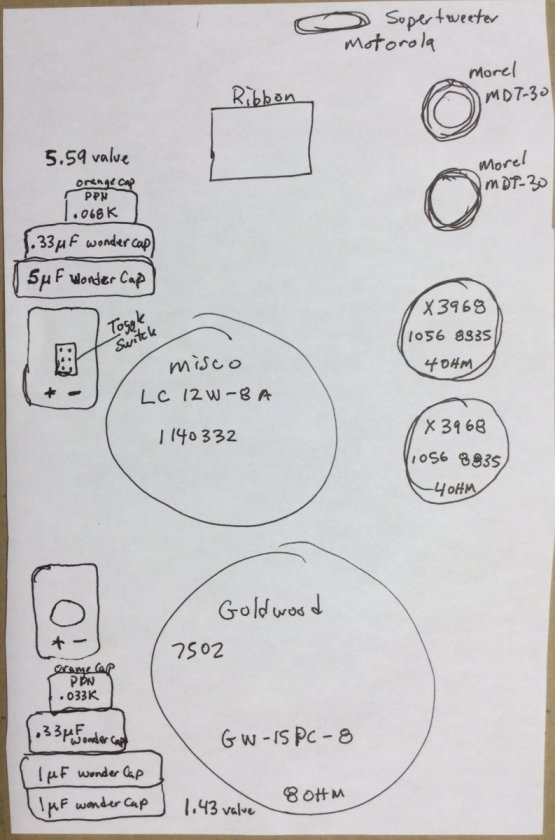 Supertweeter
Motorola
Ribbon
Morel
MDT-30
Morel
MDT-30
5.59 value
orange cap
PPN
.068K
.33µF wonder cap
5µF Wonder Cap
Toggle
Switch
+ -
misco
LC 12W-8A
1140332
X3968
1056 8835
4OHM
X3968
1056 8835
4OHM
+ -
orange cap
PPN
.033K
.33µF
wonder cap
1µF wonder Cap
1µF wonder Cap
1.43 value
Goldwood
7502
GW-15PC-8
8OHM